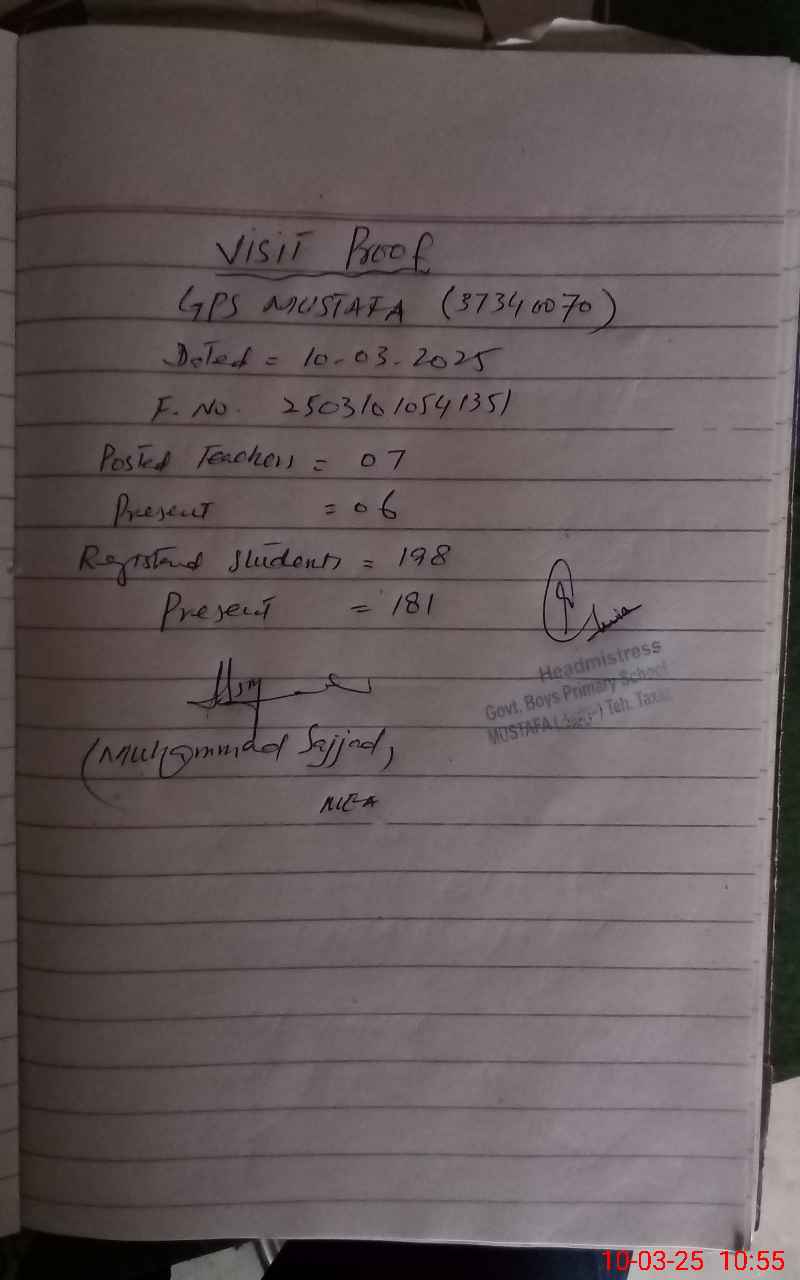 Visit Proof
GPS MUSTAFA (37340070)
Dated = 10-03-2025
F. No. 25031010541351
Posted Teachers = 07
Present = 06
Registered students = 198
Present = 181
(Muhammad Sajjad)
MEA
Headmistress
Govt. Boys Primary School
MUSTAFA ( ) Teh. Taxi
10-03-25 10:55